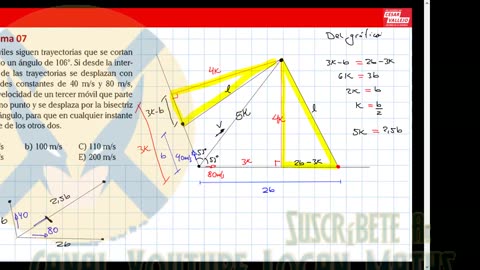 CÉSAR
VALLEJO
ma 07
viles siguen trayectorias que se cortan
o un ángulo de 106°. Si desde la inter-
de las trayectorias se desplazan con
des constantes de 40 m/s y 80 m/s,
velocidad de un tercer móvil que parte
no punto y se desplaza por la bisectriz
ángulo, para que en cualquier instante
e de los otros dos.
b) 100 m/s
C) 110 m/s
E) 200 m/s
Del gráfico
3k-b = 2b-3k
6k = 3b
2k = b
k = b/2
5k = 2,5b
4k
l
3k-b
3k
b
40m/s
53°
53°
V
5k
4k
l
3k
2b-3k
80m/s
2b
b
40
2,5b
80
2b
SUSCRÍBETE
CANAL YOUTUBE LOGAN MATHS